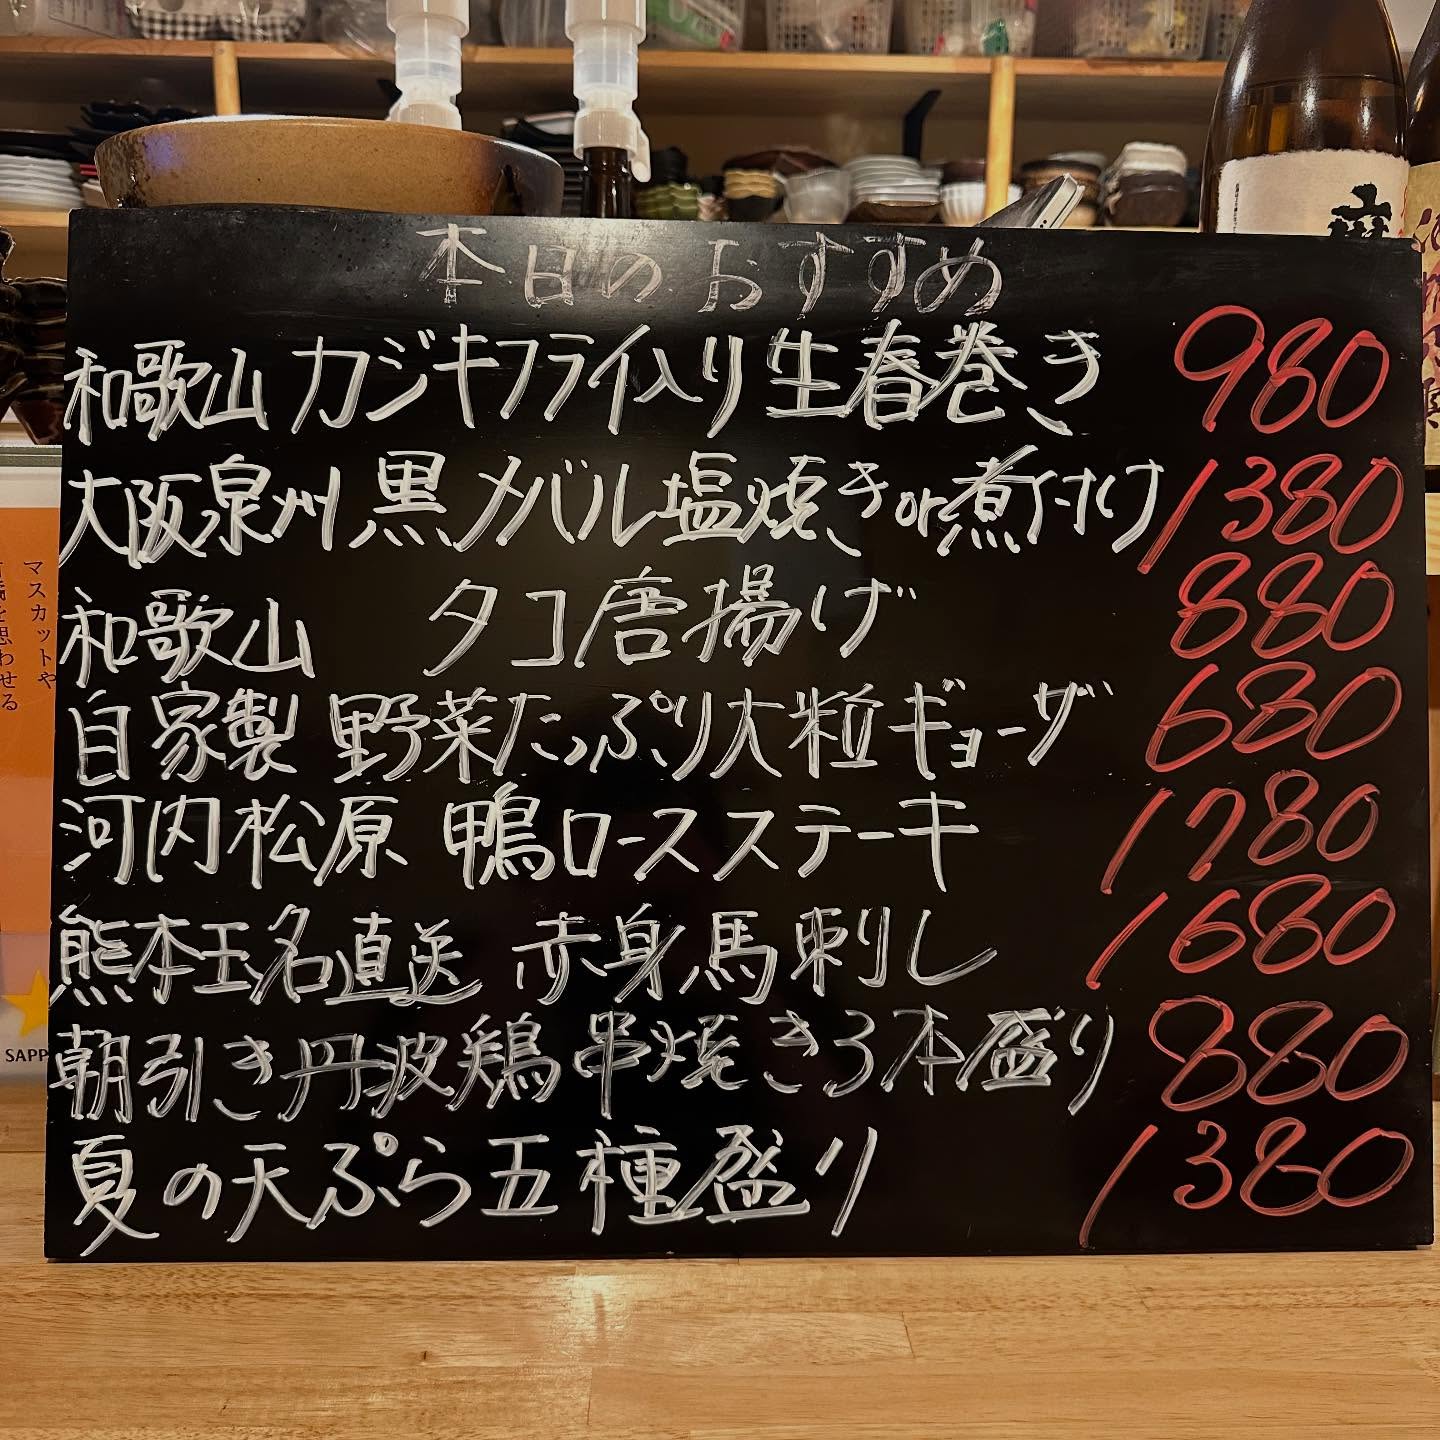 本日のおすすめ
和歌山 カジキフライ入り生春巻き 980
大阪泉州 黒メバル塩焼きor煮付け 1380
和歌山 タコ唐揚げ 880
自家製 野菜たっぷり大粒ギョーザ 680
河内松原 鴨ロースステーキ 1780
熊本玉名直送 赤身馬刺し 1680
朝引き丹波鶏串焼き3本盛り 880
夏の天ぷら五種盛り 1380
マスカットや
を思わせる
SAPP